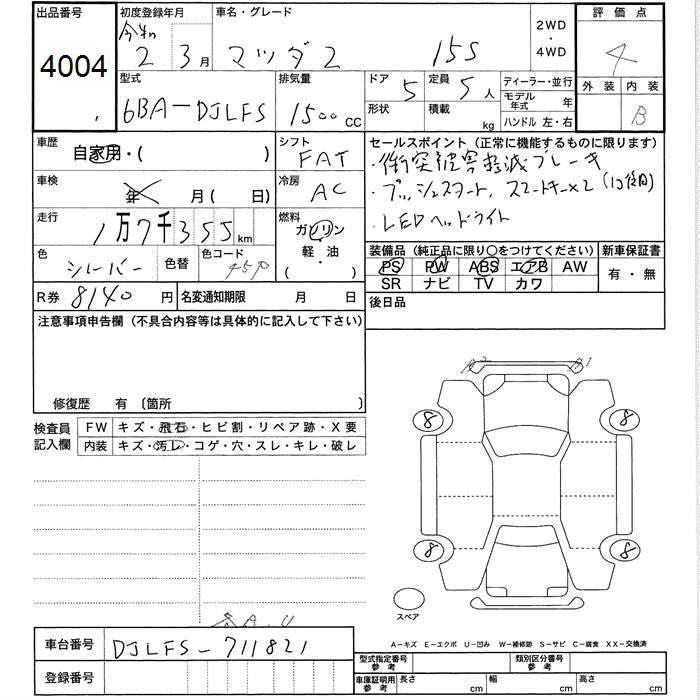 出品番号 初度登録年月 車名・グレード 2WD・4WD 評価点
4004 令和 2 3月 マツダ2 15S 4
型式 排気量 ドア 5 定員 5人 ディーラー・並行 外装 内装
6BA-DJLFS 1500 CC 形状 積載 kg モデル年式 年 ハンドル 左・右 B
車歴 自家用・( ) シフト FAT セールスポイント (正常に機能するものに限ります)
・衝突被害軽減ブレーキ
車検 年 月(日) 冷房 AC ・プッシュスタート, スマートキー×2
走行 1万7千355km 燃料 ガソリン 軽・油 ( ) ・LEDヘッドライト
色 シルバー 色替 色コード 装備品 (純正品に限り○をつけてください) 新車保証書
PS PW ABS エアB AW 有・無
SR ナビ TV カワ
R券 8140円 名変通知期限 月 日 後日品
注意事項申告欄 (不具合内容等は具体的に記入して下さい)
修復歴 有 〔箇所 〕
検査員記入欄 FW キズ・飛石・ヒビ割・リペア跡・X要
内装 キズ・汚レ・コゲ・穴・スレ・キレ・破レ
B2 B1
8 8
8 8
スペア
A-キズ E-エクボ U-凹み W-補修跡 S-サビ C-腐食 XX-交換済
車台番号 DJLFS-711821 型式指定番号 参考 類別区分番号 参考
登録番号 車庫証明用 参考 長さ cm 幅 cm 高さ cm